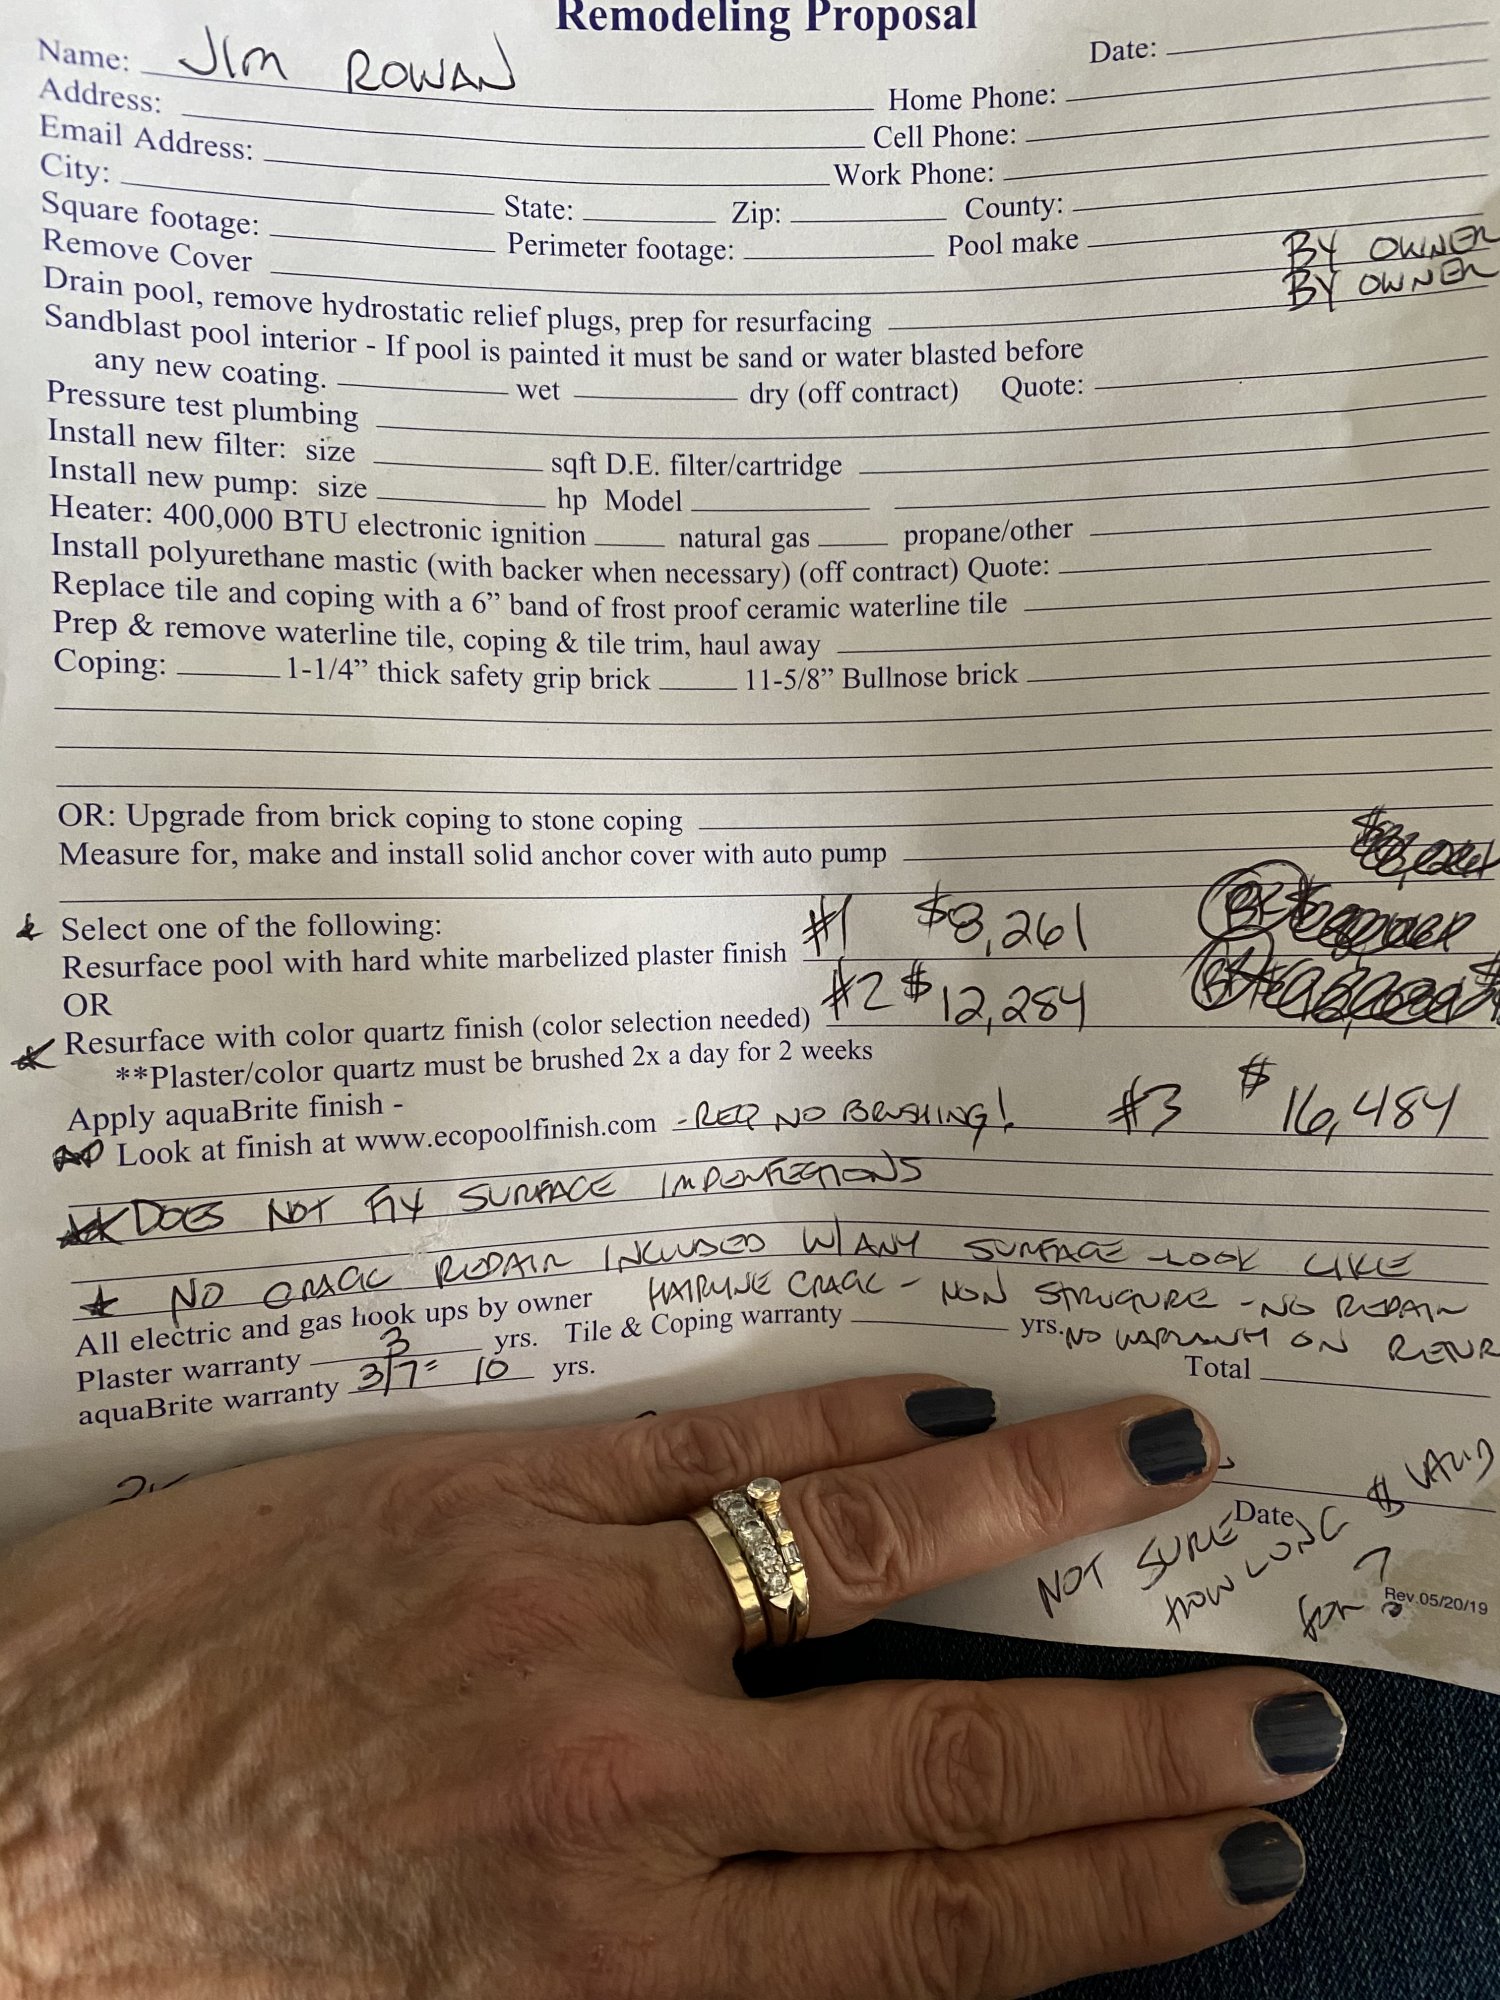 Remodeling Proposal
Name: JIM ROWAN Date:
Address: Home Phone:
Email Address: Cell Phone:
City: Work Phone:
State: Zip: County:
Square footage: Perimeter footage: Pool make
Remove Cover BY OWNER
Drain pool, remove hydrostatic relief plugs, prep for resurfacing BY OWNER
Sandblast pool interior - If pool is painted it must be sand or water blasted before
any new coating. wet dry (off contract) Quote:
Pressure test plumbing
Install new filter: size sqft D.E. filter/cartridge
Install new pump: size hp Model
Heater: 400,000 BTU electronic ignition natural gas propane/other
Install polyurethane mastic (with backer when necessary) (off contract) Quote:
Replace tile and coping with a 6” band of frost proof ceramic waterline tile
Prep & remove waterline tile, coping & tile trim, haul away
Coping: 1-1/4” thick safety grip brick 11-5/8” Bullnose brick
OR: Upgrade from brick coping to stone coping
Measure for, make and install solid anchor cover with auto pump
Select one of the following:
Resurface pool with hard white marbelized plaster finish #1 $8,261
OR
Resurface with color quartz finish (color selection needed) #2 $12,284
**Plaster/color quartz must be brushed 2x a day for 2 weeks
Apply aquaBrite finish -
Look at finish at www.ecopoolfinish.com - REQ NO BRUSHING! #3 $16,484
DOES NOT FIX SURFACE IMPERFECTIONS
* NO CRACK REPAIR INCLUDED W/ANY SURFACE - LOOK LIKE
All electric and gas hook ups by owner HAIRLINE CRACK - NON STRUCTURE - NO REPAIR
Plaster warranty 3 yrs. Tile & Coping warranty yrs. NO WARRANTY ON RETUR
aquaBrite warranty 3/7 = 10 yrs. Total
Date
NOT SURE
HOW LONG $ VALID
for?
Rev.05/20/19